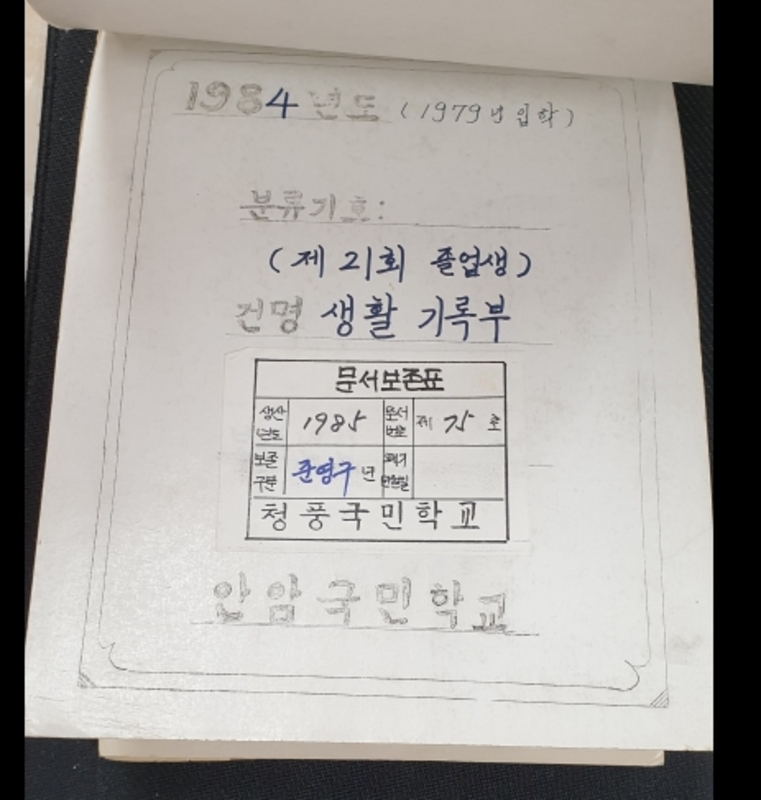 1984년도 (1979년 입학)
분류기호:
(제 21회 졸업생)
건명 생활 기록부
문서보존표
생산년도 1985 문서번호 제 75 호
보존구분 준영구 년 폐기
청풍국민학교
안암국민학교